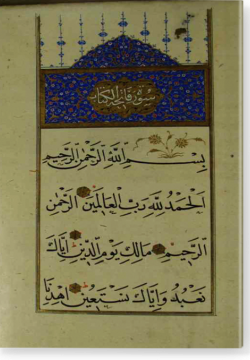 سورة فاتحة الكتاب
بِسْمِ اللَّهِ الرَّحْمَٰنِ الرَّحِيمِ
اَلْحَمْدُ لِلَّهِ رَبِّ الْعَالَمِينَ الرَّحْمَٰنِ
الرَّحِيمِ مَالِكِ يَوْمِ الدِّينِ اِيَّاكَ
نَعْبُدُ وَاِيَّاكَ نَسْتَعِينُ اِهْدِنَا